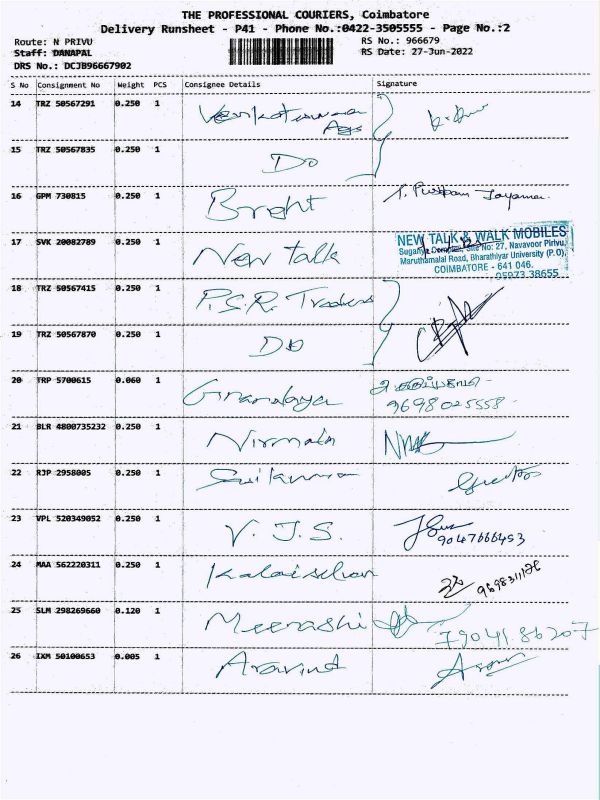 THE PROFESSIONAL COURIERS, Coimbatore
Delivery Runsheet - P41 - Phone No.:0422-3505555 - Page No.:2
Route: N PRIVU RS No.: 966679
Staff: DANAPAL RS Date: 27-Jun-2022
DRS No.: DCJB96667902
S No Consignment No Weight PCS Consignee Details Signature
14 TRZ 50567291 0.250 1
15 TRZ 50567835 0.250 1 Do
16 GPM 730815 0.250 1 Bright
17 SVK 20082789 0.250 1 New talk
NEW TALK & WALK MOBILES
Site No: 27, Navavoor Pirivu,
Maruthamalai Road, Bharathiyar University (P.O),
COIMBATORE - 641 046.
05973 38655
18 TRZ 50567415 0.250 1 P.S.R. Traders
19 TRZ 50567870 0.250 1 Do
20 TRP 5700615 0.060 1
9698025558
21 BLR 4800735232 0.250 1 Nirmala
22 RJP 2958005 0.250 1
23 VPL 520349052 0.250 1 V. J. S.
9047666453
24 MAA 562220311 0.250 1 Kalaiselvan
25 SLM 298269660 0.120 1 Meenashi
79041.86207
26 IXM 50100653 0.005 1 Aravind